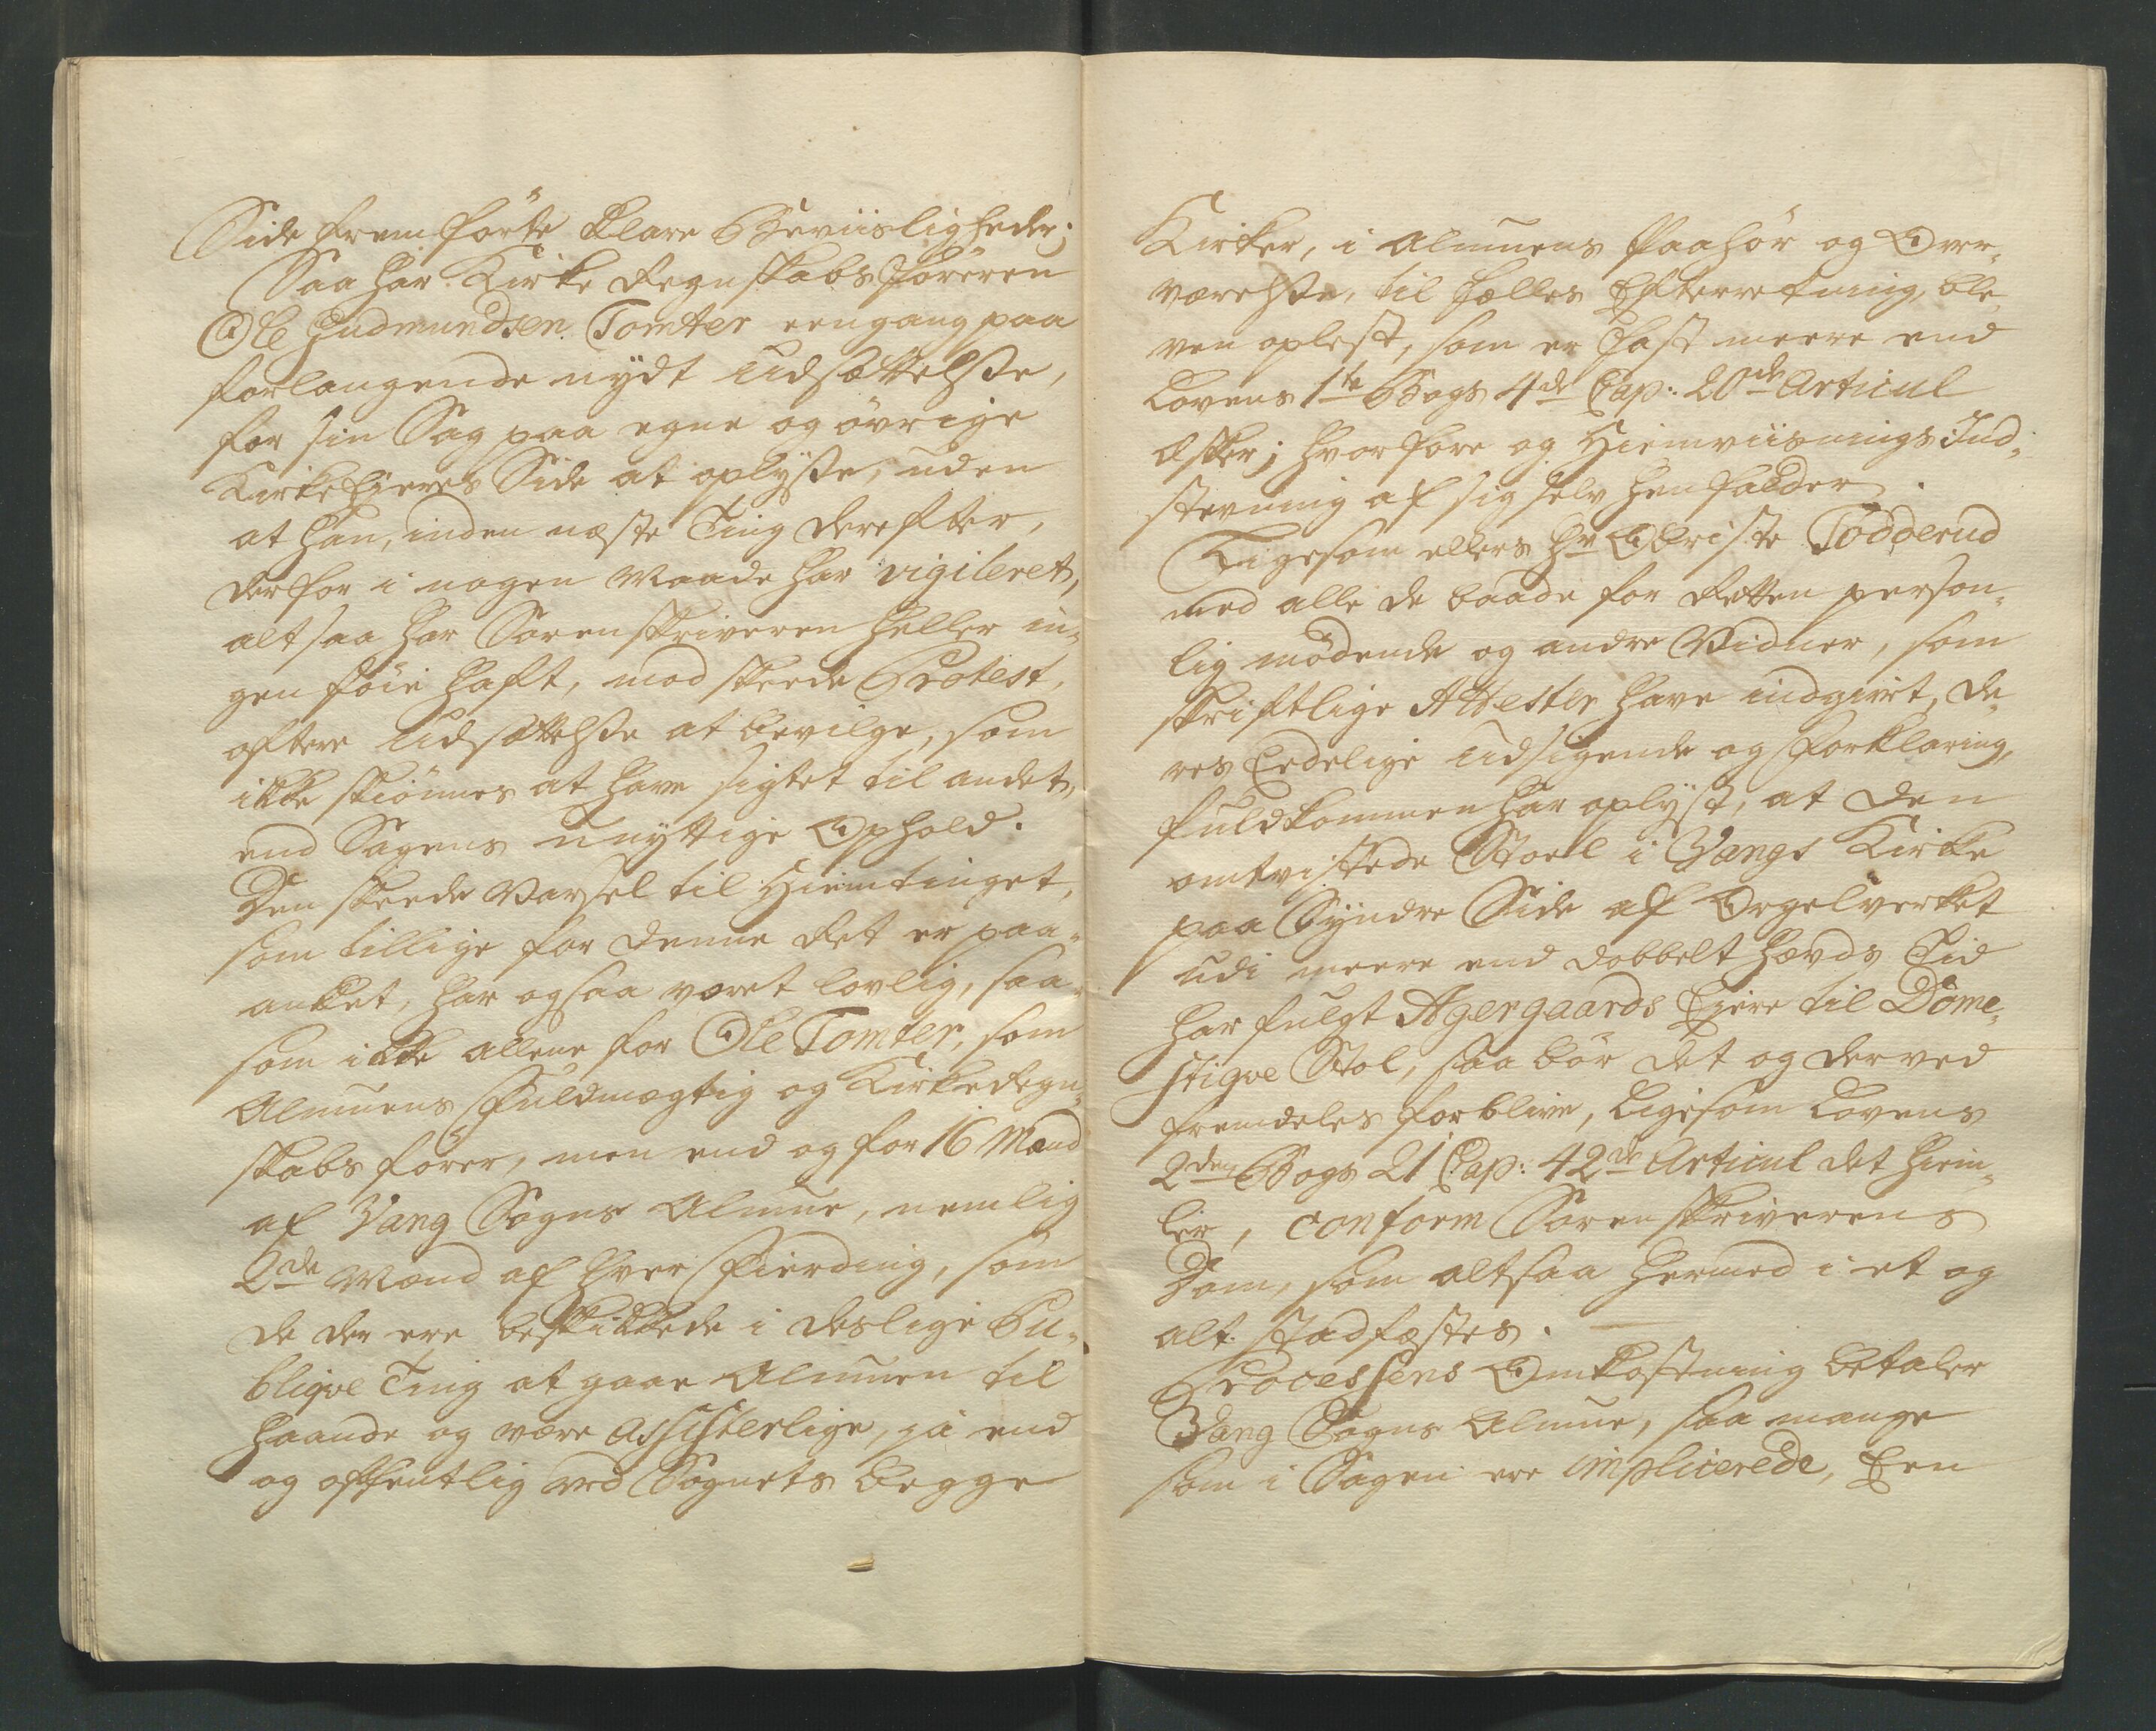 Side fremförte klare Beviisligheder;
Saa har Kirke Regnskabs Föreren
Ole Gudmundsen Tomter eengang paa
forlangende nydt Udsættelse,
for sin Sag paa egne og övrige
Kirke Eieres Side at oplyse, uden
at han, inden næste Ting derefter,
derfor i nogen Maade har vigileret,
altsaa har Sorenskriveren heller in-
gen föie haft, mod skeede Protest,
oftere Udsættelse at bevilge, som
ikke skiönnes at have sigtet til andet,
end Sagens unyttige Ophold.
Den skeede Varsel til Hiemtinget,
som tillige for denne Ret er paa-
anket, har ogsaa været lovlig, saa-
som ikke allene for Ole Tomter, som
Almuens Fuldmægtig og Kirke Regn-
skabs fører, men end og for 16 Mænd
af Vang Sogns Almue, nemlig
2de Mænd af hver Fierding, som
de der ere beskikkede i deslige Pu-
bliqve Ting at gaae Almuen til
haande og være assisterlige, ja end
og offentlig ved Sognets begge
Kirker, i Almuens Paahör og Over-
værelse, til fælles Efterretning, ble-
ven oplæst, som er fast meere end
Lovens 1te Bogs 4de Cap: 20de Articul
Æsker; hvorfore og Hiemviisnings Ind-
stevning af sig selv henfalder.
Ligesom ellers Hr Obriste Tödderud
med alle de baade for Retten person-
lig mödende og andre Vidner, som
skriftlige Attester have indgivet, de-
res Eedelige Udsigende og Forklaring,
fuldkommen har oplyst, at den
omtvistede Stoel i Vangs Kirke
paa Syndre Side af Orgelverket
udi meere end dobbelt hævds Tid
har fulgt Agergaards Eiere til Dome-
stiqve Stol, saa bör det og derved
fremdeles forblive, ligesom Lovens
2den Bogs 21 Cap: 42de Articul det hiem-
ler, conform Sorenskriverens
Dom, som altsaa hermed i et og
alt stadfæstes.
Processens Omkostning betaler
Vang Sogns Almue, saa mange
som i Sagen ere implicerede, Een